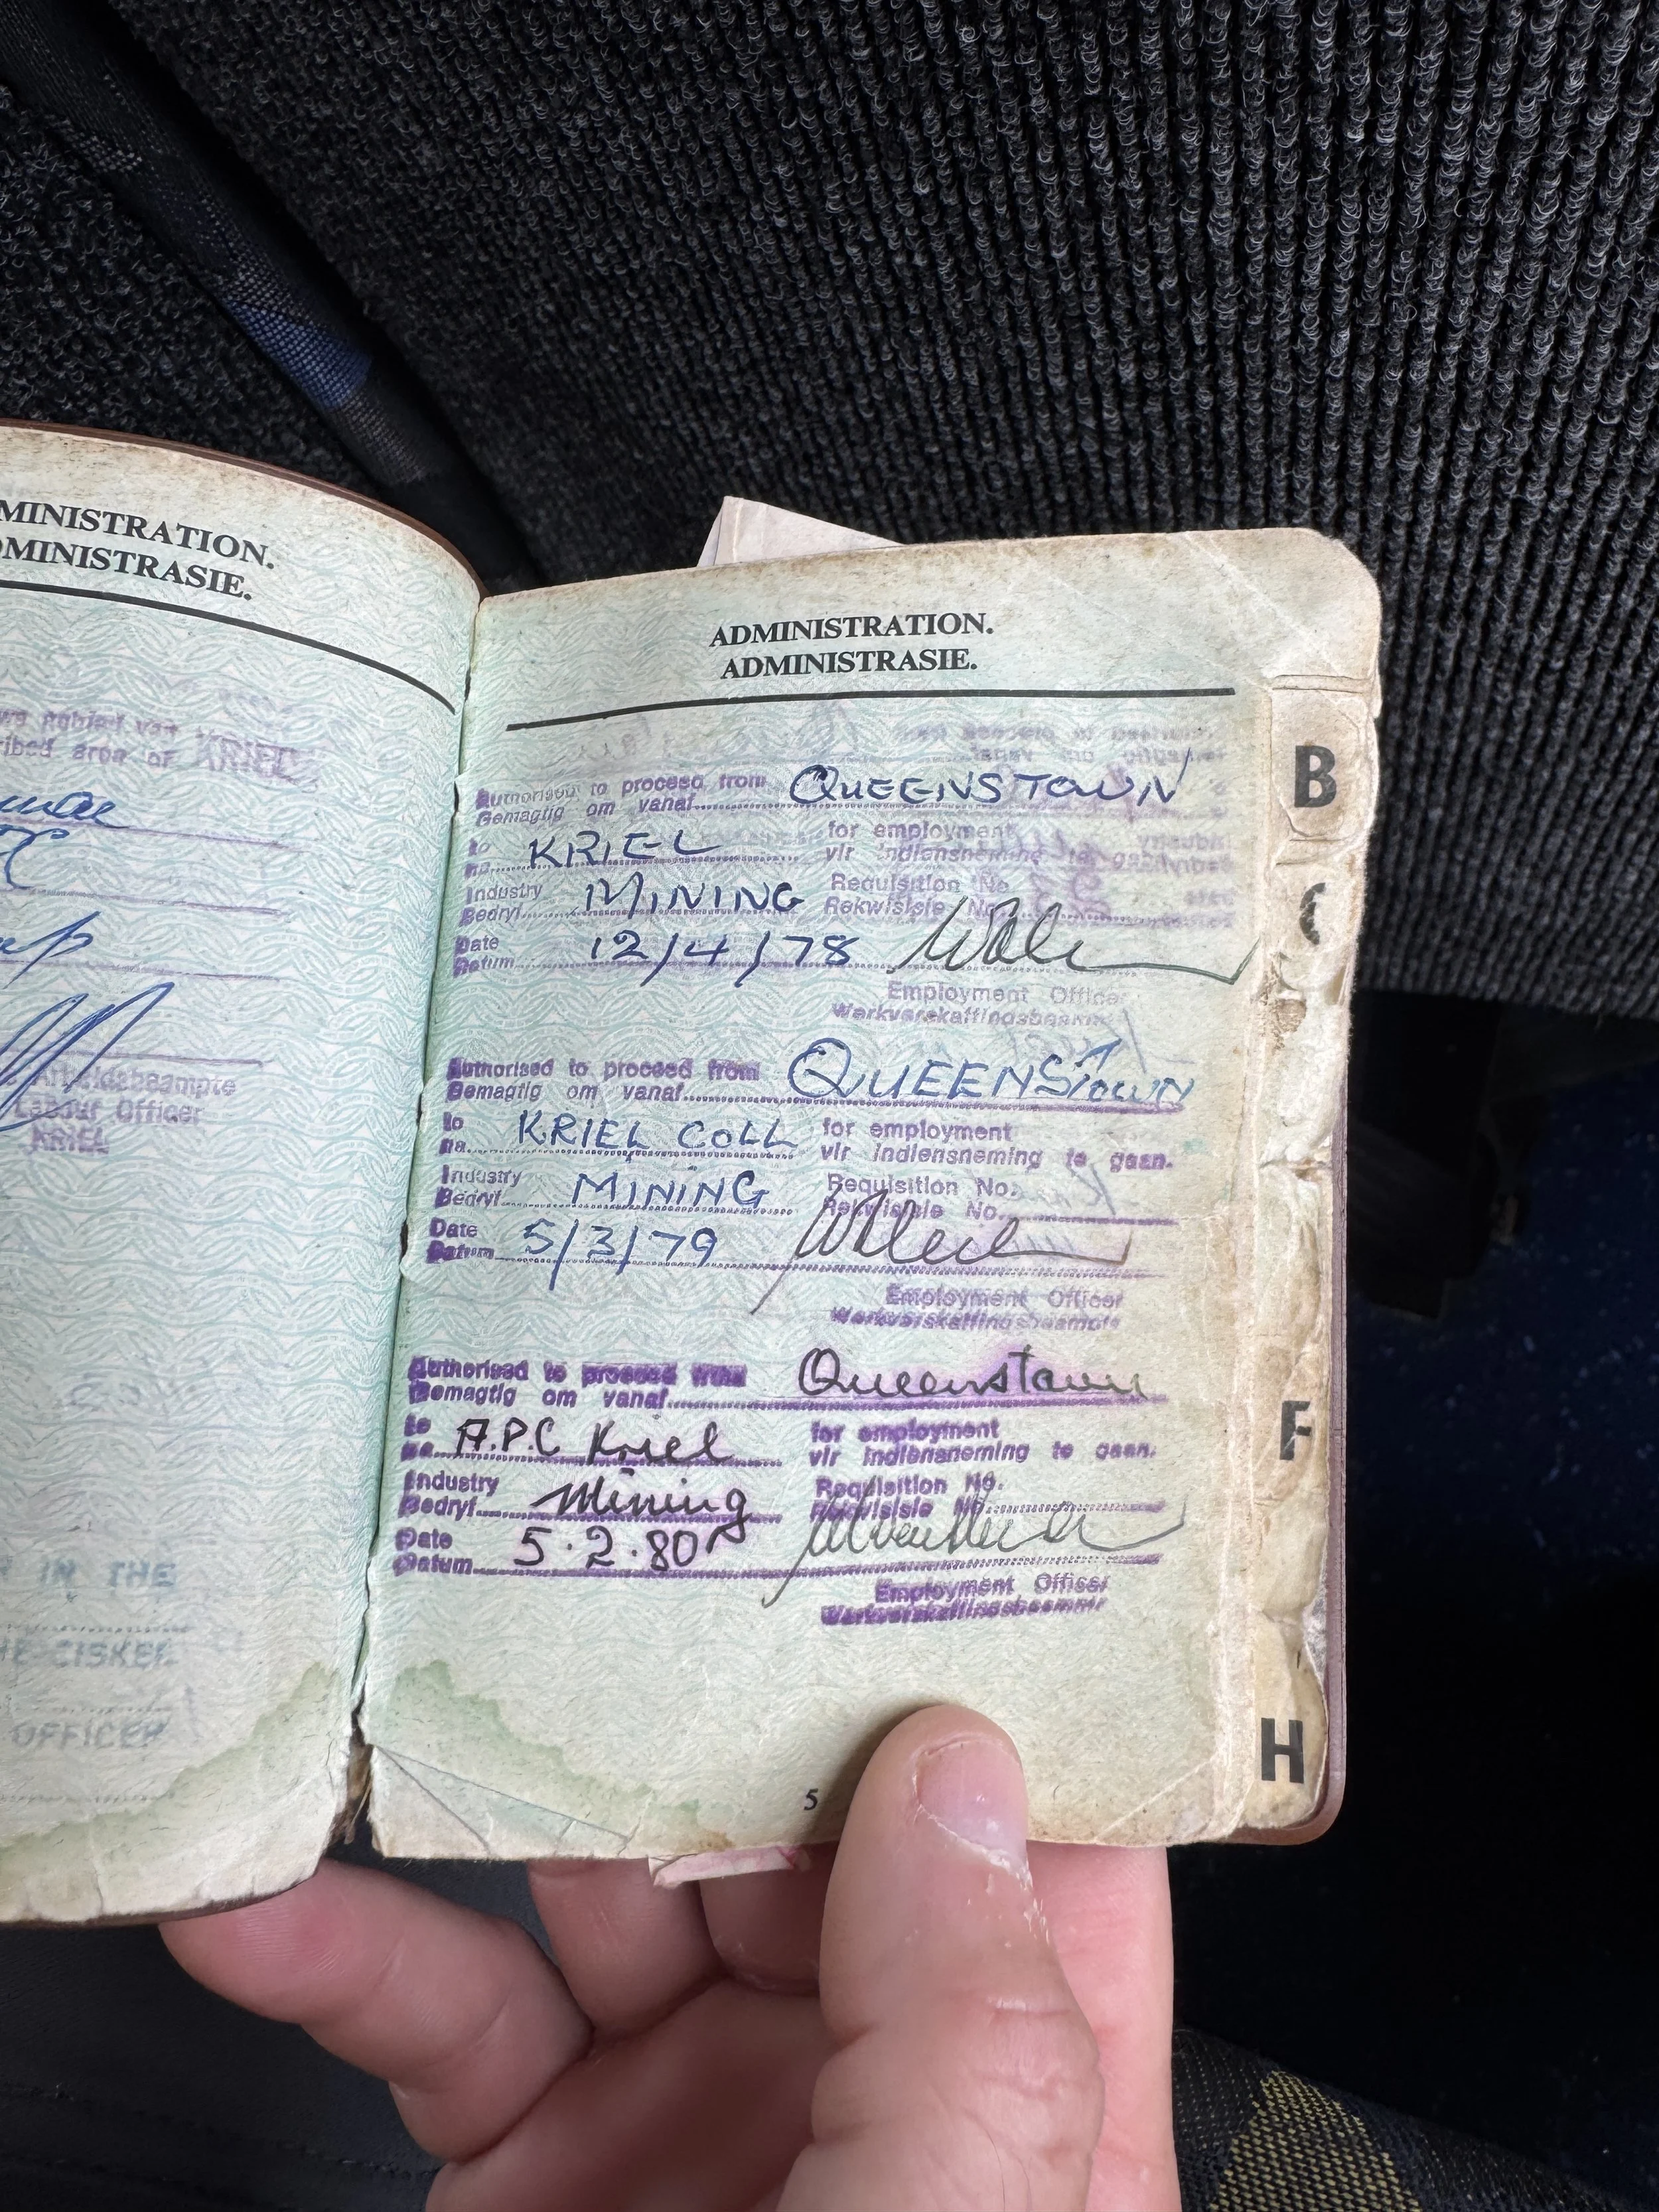 MINISTRATION.
DMINISTRASIE.
ribed area of KRIEL
Arbeidsbeampte
Labour Officer
KRIEL
IN THE
CISKEI
OFFICER
ADMINISTRATION.
ADMINISTRASIE.
Authorised to proceed from QUEENSTOWN
Gemagtig om vanaf
to KRIEL for employment
na vir indiensneming
Industry MINING Requisition No
Bedryf Rekwisisie No.
Date 12/4/78
Datum
Employment Officer
Werkverskaffingsbeampte
Authorised to proceed from QUEENSTOWN
Gemagtig om vanaf
to KRIEL COLL for employment
na vir indiensneming te gaan.
Industry MINING Requisition No.
Bedryf Rekwisisie No.
Date 5/3/79
Datum
Employment Officer
Werkverskaffingsbeampte
Authorised to proceed from Queenstown
Gemagtig om vanaf
to A.P.C Kriel for employment
na vir indiensneming te gaan.
Industry Mining Requisition No.
Bedryf Rekwisisie No.
Date 5.2.80
Datum
Employment Officer
Werkverskaffingsbeampte
5
B
C
F
H